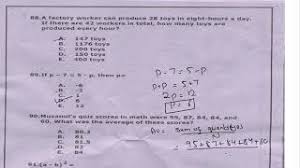 88. A factory worker can produce 28 toys in eight-hours a day.
If there are 42 workers in total, how many toys are
produced every hour?
A. 147 toys
B. 1176 toys
C. 200 toys
D. 150 toys
E. 400 toys
89. If p - 7 = 5 - p, then p=
A. -6
B.
C.
D. 6
E. 8
P-7=5-P
P+P=5+7
2P=12
P=6
90. Husand's quiz scores in math were 95, 87, 84, 84, and
60. What was the average of these scores?
Av= Sum of
N
= 95+87+84+84+60
A. 80.3
B. 81
C. 82
D. 83
E. 84